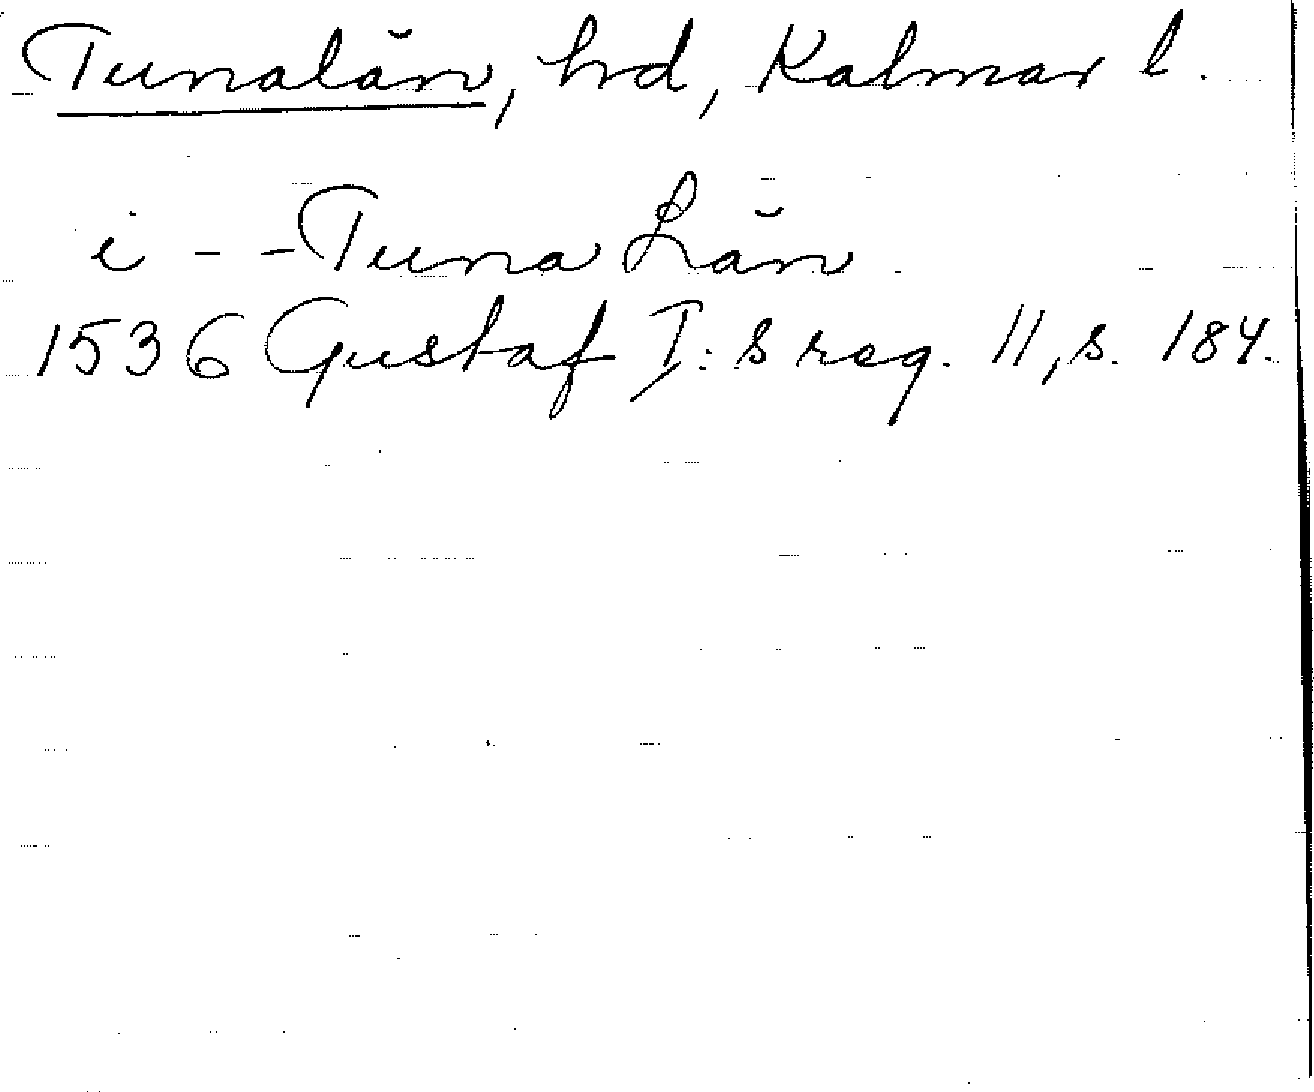 Tunalän, hd, Kalmar l.
i - - Tuna Län
1536 Gustaf I:s reg. 11, s. 184.